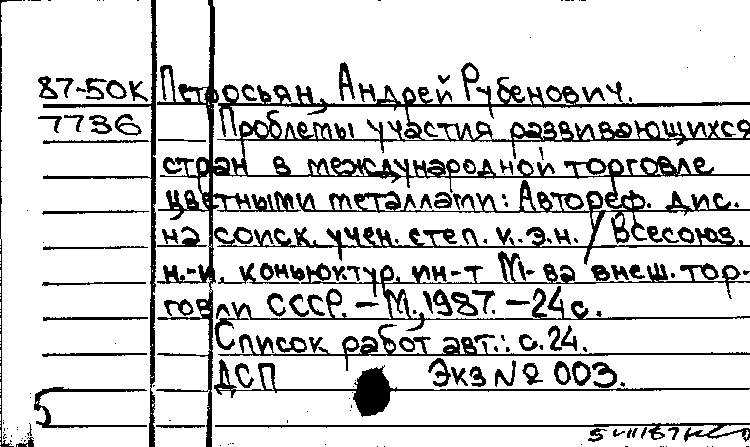 87-50К Петросьян, Андрей Рубенович.
7736 Проблемы участия развивающихся
стран в международной торговле
цветными металлами: Автореф. дис.
на соиск. учен. степ. к.э.н. / Всесоюз.
н.-и. коньюктур. ин-т М-ва внеш. тор-
говли СССР. - М., 1987. - 24 с.
Список работ авт.: с. 24.
ДСП Экз № 003.
5